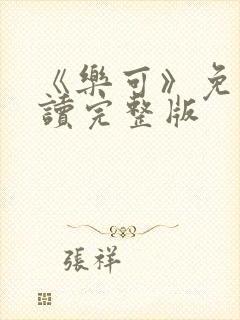 《樂可》免
讀完整版
張祥